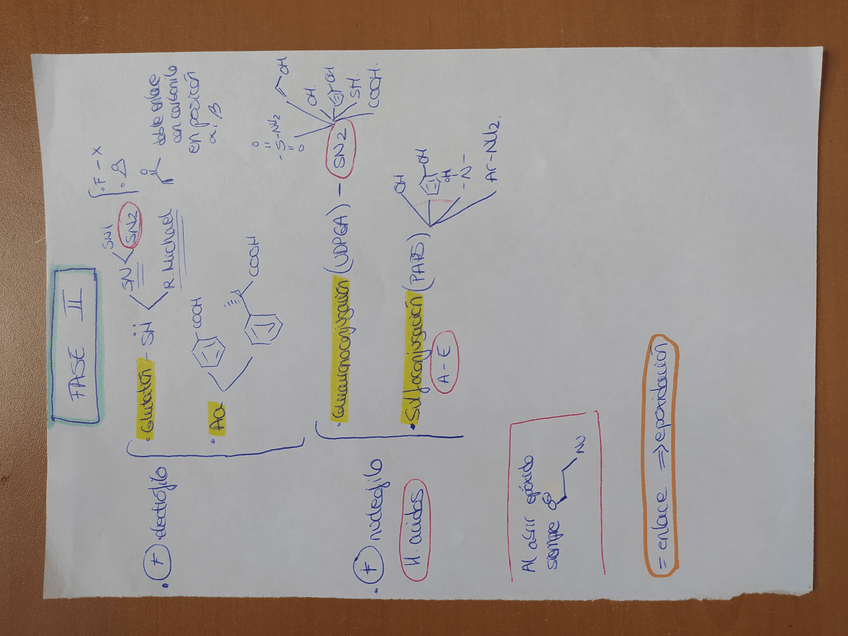 FASE II
· (+) electrófilo
· Glutatión - SH
SN
SN1
SN2
R. Michael
· F - X
doble enlace
con carbonilo
en posición
α, β
· Aa
COOH
COOH
· (+) nucleófilo
H. acidos
· Glucuronoconjugación (UDPGA) - SN2
O O
- S - NH2
OH
OH
OH
SH
COOH
· Sulfoconjugación (PAPS)
A - E
OH
OH
OH
- N -
Ar - NH2
Al abrir epóxido
siempre
Nu
= enlace => epoxidación